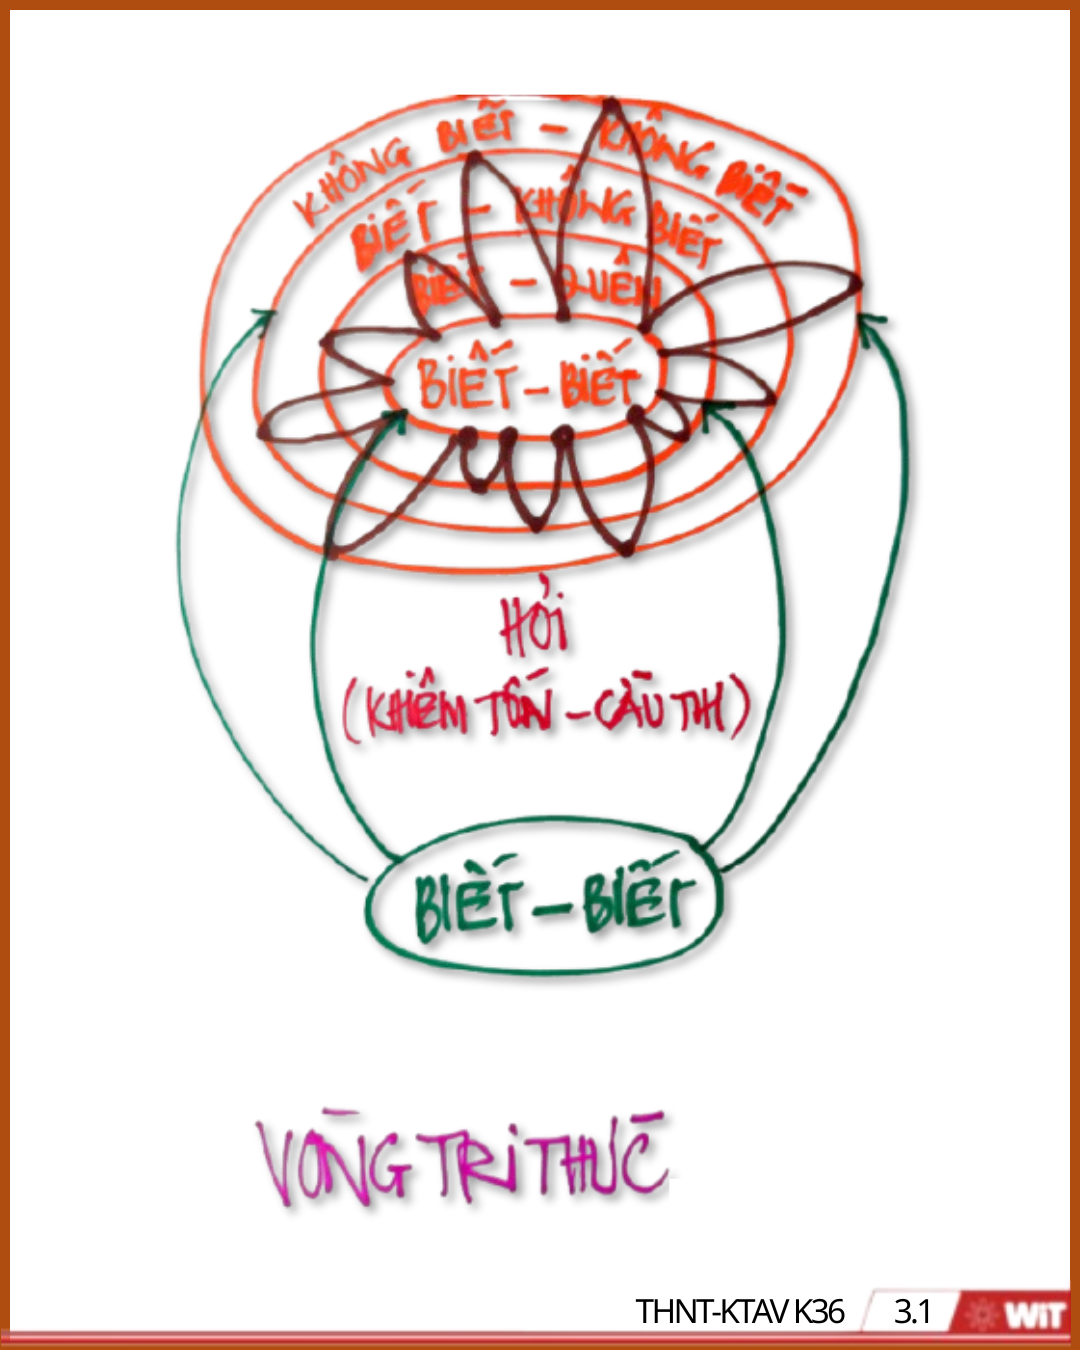 KHÔNG BIẾT - KHÔNG BIẾT
BIẾT - KHÔNG BIẾT
BIẾT - QUÊN
BIẾT - BIẾT
HỎI
(KHIÊM TỐN - CẦU THỊ)
BIẾT - BIẾT
VÒNG TRI THỨC
THNT-KTAV K36 3.1 WiT